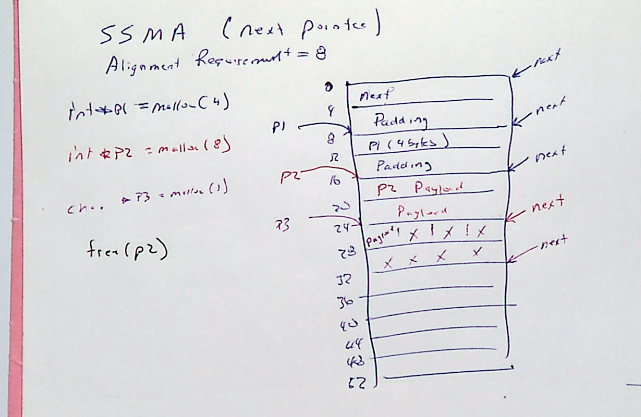 SSMA (next pointer)
Alignment Requirement = 8
int *P1 = malloc(4)
int *P2 = malloc(8)
char *P3 = malloc(1)
free(p2)
P1
P2
P3
0
4
8
12
16
20
24
28
32
36
40
44
48
52
next
Padding
P1 (4 bytes)
Padding
P2 Payload
Payload
Payload | X | X | X
X X X X
next
next
next
next
next